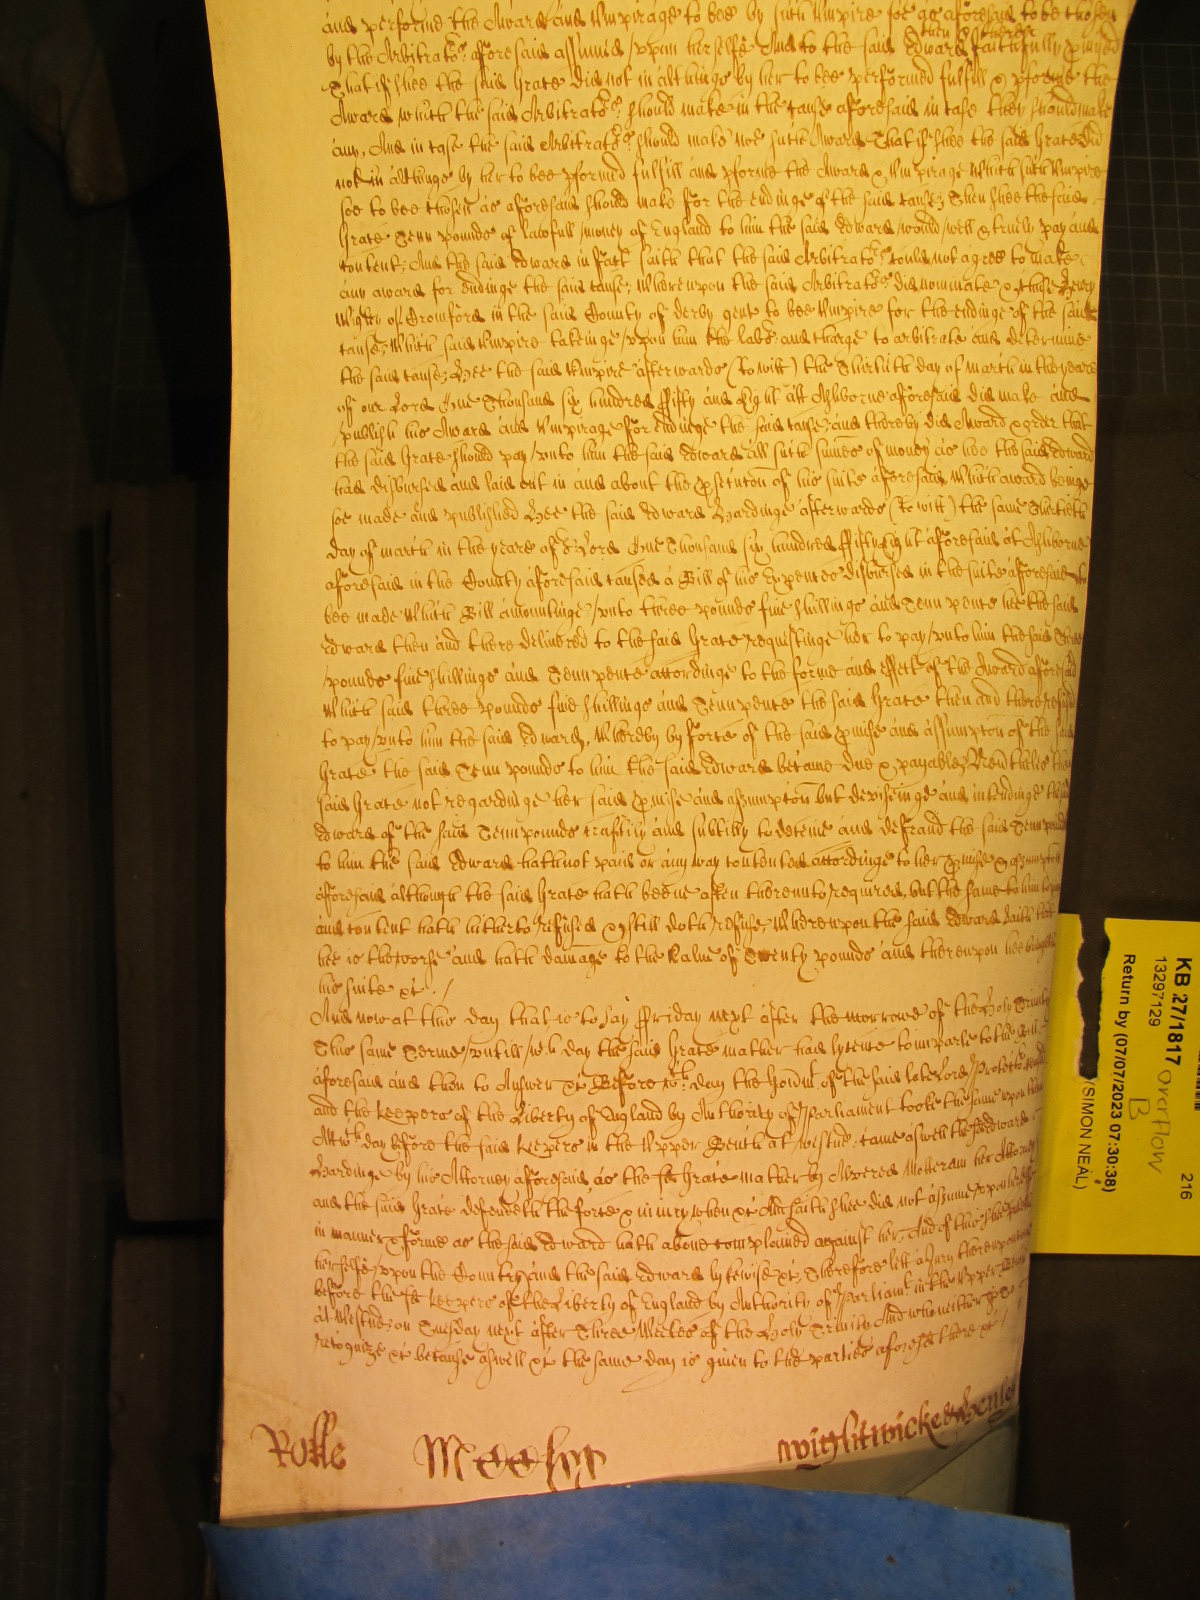 and performe the Award and Umpirage to bee by such Umpire soe as aforesaid to be chosen
then & there
by the Arbitratrs aforesaid assumed upon herselfe And to the said Edward faithfully pmised
That if shee the said Grace did not in all things by her to bee performed fulfill & pforme the
Award which the said Arbitratrs should make in the cause aforesaid in case they should make
any, And in case the said Arbitratrs should make noe such Award That if shee the said Grace did
not in all things by her to bee pformed fulfill and pforme the Award & Umpirage which such Umpire
soe to bee chosen as aforesaid should make for the endinge of the said cause; Then shee the said
Grace Tenn pounds of lawfull money of England to him the said Edward would well & truely pay and
content; And the said Edward in fact saith that the said Arbitratrs could not agree to make
any award for endinge the said cause; Whereupon the said Arbitratrs did nominate & chuse Henry
of Cromford in the said County of derby gent to bee Umpire for the endinge of the said
cause; Which said Umpire takeinge upon him the labr and charge to arbitrate and determine
the said cause; Hee the said Umpire afterwards (To witt) the Thirtith day of march in the yeare
of our Lord One Thousand six hundred Fifty and Eight att Ashborne aforesaid did make and
publish his Award and Umpirage for endinge the said cause; and thereby did Award & order that
the said Grace should pay unto him the said Edward all such sumes of money as hee the said Edward
had disbursed and laid out in and about the psecution of his suite aforesaid, Which award beinge
soe made and published Hee the said Edward Hardinge afterwards (To witt) the same Thirtieth
day of march in the yeare of or Lord One Thousand six hundred Fifty Eight aforesaid at Ashborne
aforesaid in the County aforesaid caused a Bill of his Expences disbursed in the suite aforesaid to
bee made Which Bill amountinge unto three pounds five shillings and Tenn pence hee the said
Edward then and there delivered to the said Grace requestinge her to pay unto him the said Three
pounds five shillings and Tenn pence accordinge to the forme and effect of the Award aforesaid
Which said three pounds five shillings and Tenn pence the said Grace then and there refused
to pay unto him the said Edward, Whereby by force of the said pmise and assumption of the said
Grace the said Tenn pounds to him the said Edward became due & payable; Nevertheles the
said Grace not regardinge her said pmise and assumption but deviseinge and intendinge the said
Edward of the said Tenn pounds craftily and subtilly to deceive and defraud the said Tenn pounds
to him the said Edward hath not paid or any way contented accordinge to her pmise & assumption
aforesaid although the said Grace hath beene often thereunto required, but the same to him to pay
and content hath hitherto refused & still doth refuse, Whereupon the said Edward saith that
hee is the worse and hath damage to the value of Twenty pounds and thereupon hee bringeth
his suite &c /
And now at this day that is to say Friday next after the morrowe of the Holy Trinity
This same Terme untill wch day the said Grace mather had lycence to imparle to the Bill
aforesaid and then to Answer &c Before wch day the of the said late Lord Protector
and the Keepers of the Liberty of England by Authority of Parliament tooke the same upon them
Att wch day before the said Keepers in the Upper Bench at Westmr came aswell the said Edward
Hardinge by his Attorney aforesaid, as the sd Grace mather by Motteram her Attorney
and the said Grace defendeth the force & injury when &c And saith shee did not assume upon herselfe
in manner & forme as the said Edward hath above complained against her, And of this shee putteth
herselfe upon the Country; and the said Edward lykewise &c, Therefore lett a Jury thereupon come
before the sd Keepers of the Liberty of England by Authority of Parliamt in the Upper Bench
at Westmr on Tuesday next after Three Weekes of the Holy Trinity And who neither &c To
recognize &c because aswell &c the same day is given to the parties aforesd there &c /
Rolle Mosly wightwicke & Henley
KB 27/1817
13297129
Return by (07/07/2023 07:30:38)
(SIMON NEAL)
216
overflow
B